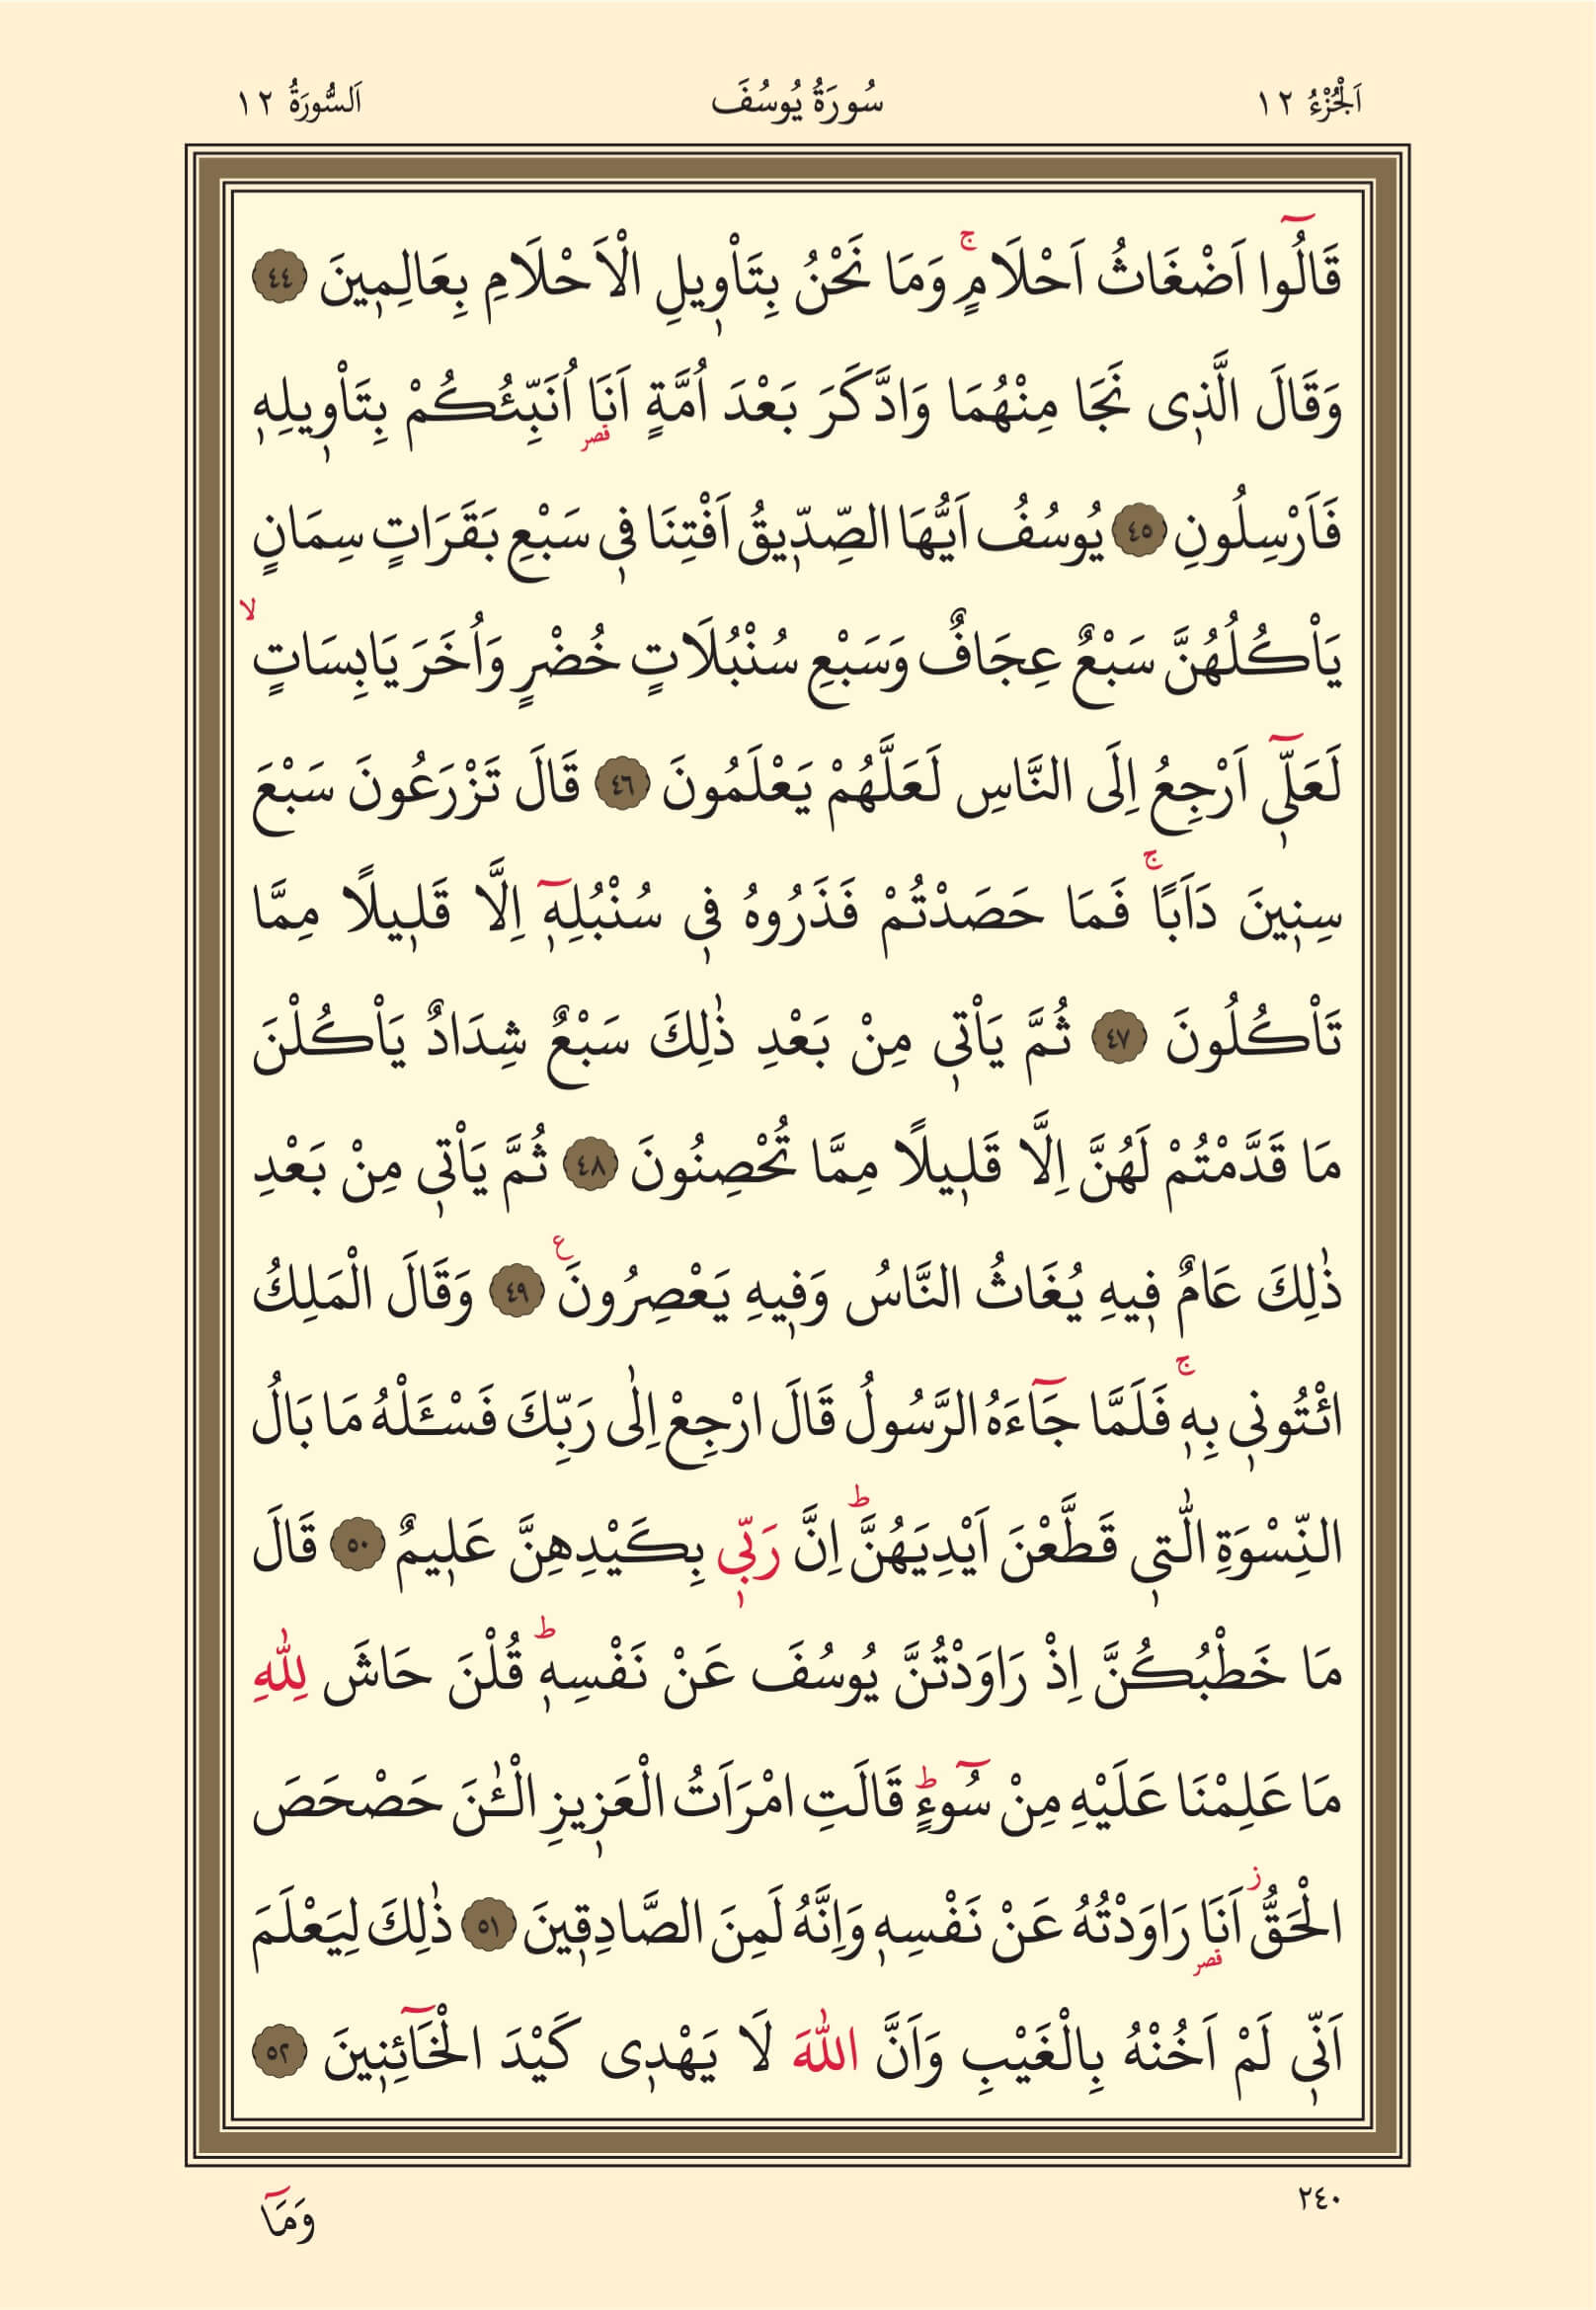 اَلْجُزْءُ ١٢ سُورَةُ يُوسُفَ اَلسُّورَةُ ١٢
قَالُٓوا اَضْغَاثُ اَحْلَامٍۚ وَمَا نَحْنُ بِتَأْو۪يلِ الْاَحْلَامِ بِعَالِم۪ينَ ٤٤
وَقَالَ الَّذ۪ى نَجَا مِنْهُمَا وَادَّكَرَ بَعْدَ اُمَّةٍ اَنَا۬ قصر اُنَبِّئُكُمْ بِتَأْو۪يلِه۪
فَاَرْسِلُونِ ٤٥ يُوسُفُ اَيُّهَا الصِّدّ۪يقُ اَفْتِنَا ف۪ى سَبْعِ بَقَرَاتٍ سِمَانٍ
يَأْكُلُهُنَّ سَبْعٌ عِجَافٌ وَسَبْعِ سُنْبُلَاتٍ خُضْرٍ وَاُخَرَ يَابِسَاتٍۙ
لَعَلّ۪ٓى اَرْجِعُ اِلَى النَّاسِ لَعَلَّهُمْ يَعْلَمُونَ ٤٦ قَالَ تَزْرَعُونَ سَبْعَ
سِن۪ينَ دَاَبًاۚ فَمَا حَصَدْتُمْ فَذَرُوهُ ف۪ى سُنْبُلِه۪ٓ اِلَّا قَل۪يلًا مِمَّا
تَأْكُلُونَ ٤٧ ثُمَّ يَأْت۪ى مِنْ بَعْدِ ذٰلِكَ سَبْعٌ شِدَادٌ يَأْكُلْنَ
مَا قَدَّمْتُمْ لَهُنَّ اِلَّا قَل۪يلًا مِمَّا تُحْصِنُونَ ٤٨ ثُمَّ يَأْت۪ى مِنْ بَعْدِ
ذٰلِكَ عَامٌ ف۪يهِ يُغَاثُ النَّاسُ وَف۪يهِ يَعْصِرُونَ ع ٤٩ وَقَالَ الْمَلِكُ
ائْتُون۪ى بِه۪ۚ فَلَمَّا جَٓاءَهُ الرَّسُولُ قَالَ ارْجِعْ اِلٰى رَبِّكَ فَسْـَٔلْهُ مَا بَالُ
النِّسْوَةِ الّٰت۪ى قَطَّعْنَ اَيْدِيَهُنَّۜ اِنَّ رَبّ۪ى بِكَيْدِهِنَّ عَل۪يمٌ ٥٠ قَالَ
مَا خَطْبُكُنَّ اِذْ رَاوَدْتُنَّ يُوسُفَ عَنْ نَفْسِه۪ۜ قُلْنَ حَاشَ لِلّٰهِ
مَا عَلِمْنَا عَلَيْهِ مِنْ سُٓوءٍۜ قَالَتِ امْرَاَتُ الْعَز۪يزِ الْـٰٔنَ حَصْحَصَ
الْحَقُّۘ اَنَا۬ قصر رَاوَدْتُهُ عَنْ نَفْسِه۪ وَاِنَّهُ لَمِنَ الصَّادِق۪ينَ ٥١ ذٰلِكَ لِيَعْلَمَ
اَنّ۪ى لَمْ اَخُنْهُ بِالْغَيْبِ وَاَنَّ اللّٰهَ لَا يَهْد۪ى كَيْدَ الْخَٓائِن۪ينَ ٥٢
٢٤٠ وَمَٓا